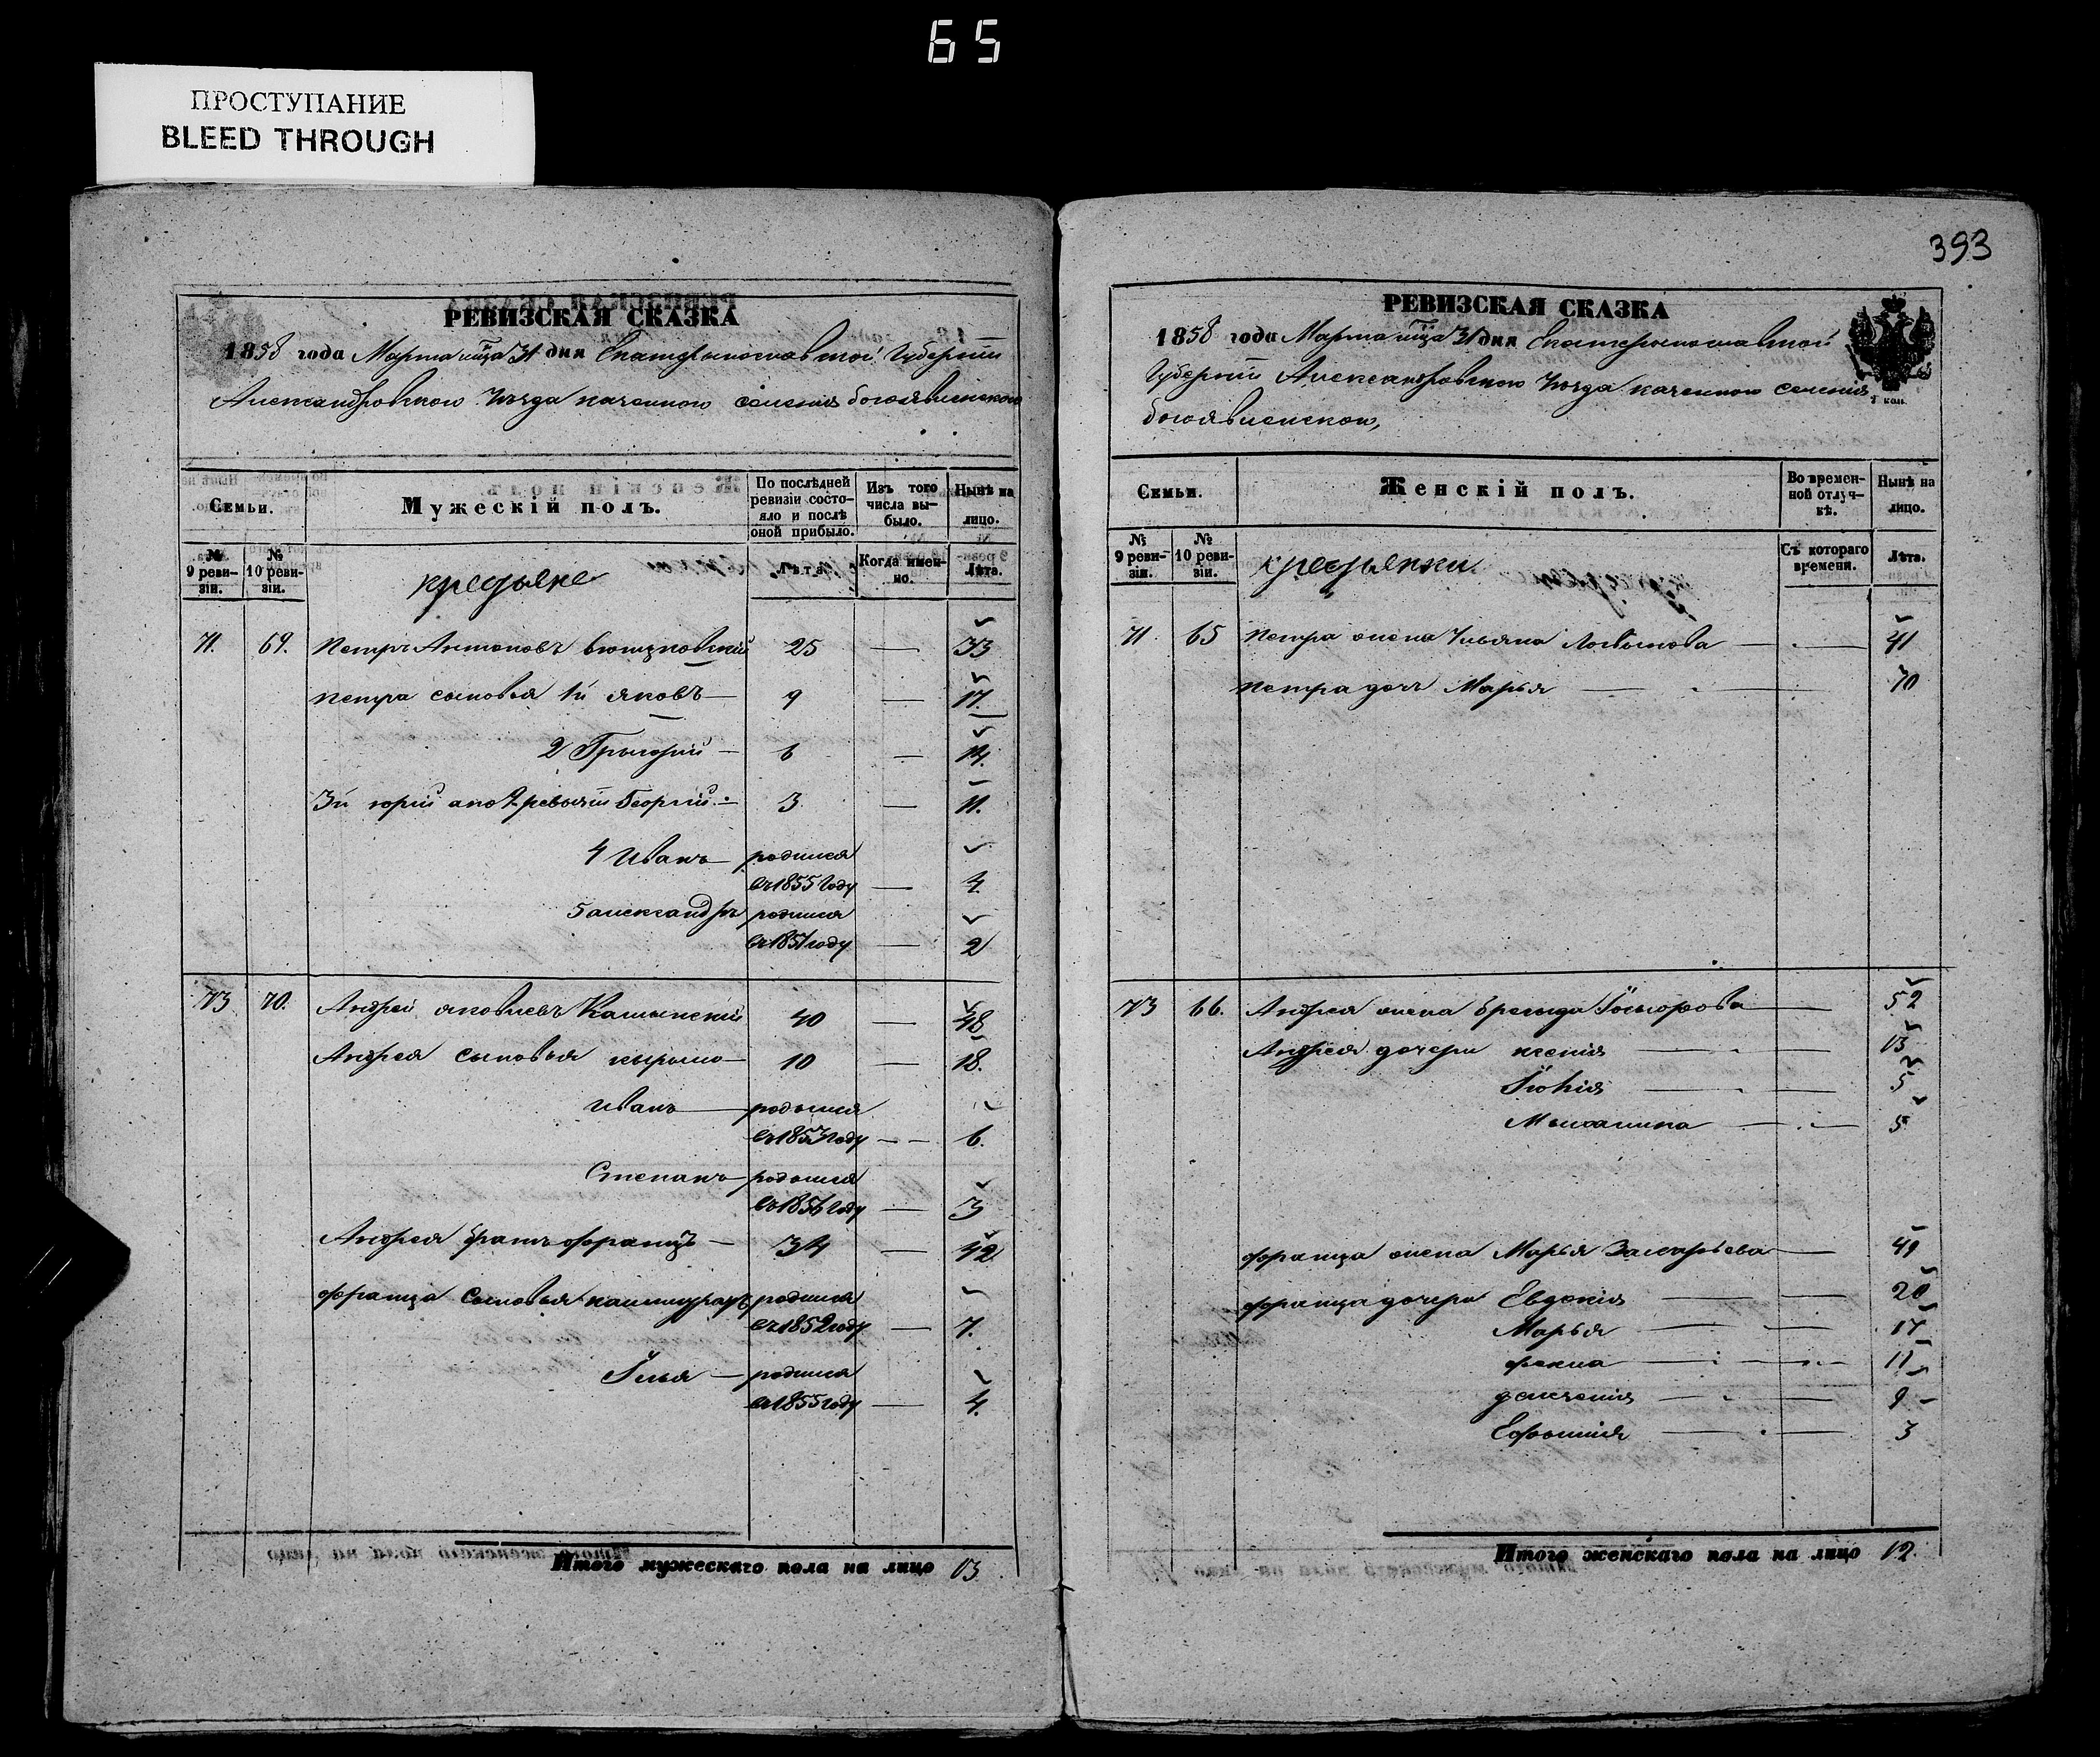 65
ПРОСТУПАНИЕ
BLEED THROUGH
РЕВИЗСКАЯ СКАЗКА
1858 года Марта мца 31 дня Екатеринославской Губернии
Александровского Уезда казенного селения богоявленского
Семьи.
Мужескій полъ.
По послѣдней ревизіи состояло и послѣ оной прибыло.
Изъ того числа выбыло.
Нынѣ на лицо.
№ 9 ревизіи.
№ 10 ревизіи.
крестьяне
Лѣта.
Когда именно.
Лѣта.
71. 69. Петръ Антоновъ 25 — 33
Петра сыновья 1й яковъ — 9 — 17.
2 Григорий — 6 — 14.
3й юрий Георгий — 3 — 11.
4 Иванъ родился
въ 1855 году — 4.
5 александръ родился
въ 1857 году — 2
73 70. Андрей яковлевъ 40 — 48
Андрея сыновья — 10 — 18.
Иванъ — родился
въ 1853 году — 6.
Степанъ — родился
въ 1856 году — 3
Андрея братъ францъ — 34 — 42
франца сыновья родился
въ 1852 году — 7.
Ілья — родился
въ 1855 году — 4.
Итого мужескаго пола на лицо 13
393
РЕВИЗСКАЯ СКАЗКА
1858 года Марта мца 31 дня Екатеринославской
Губернии Александровского Уезда казенного селения
богоявленского,
Семьи.
Женскій полъ.
Во временной отлучкѣ.
Нынѣ на лицо.
№ 9 ревизіи.
№ 10 ревизіи.
крестьянки
Съ котораго времени.
Лѣта.
71. 65 Петра жена Ульяна — 41
Петра дочь Марья — 10
73 66. Андрея жена — 52
Андрея дочери ксения — 13
5
5
франца жена Марья — 49
франца дочери Евдокия — 20
Марья — 17
фекла — 11
9
3
Итого женскаго пола на лицо 12.